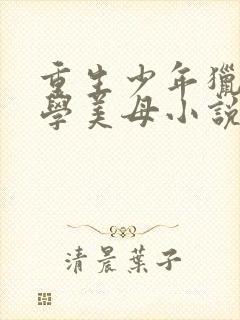 重生少年獵
學美母小說
清晨葉子